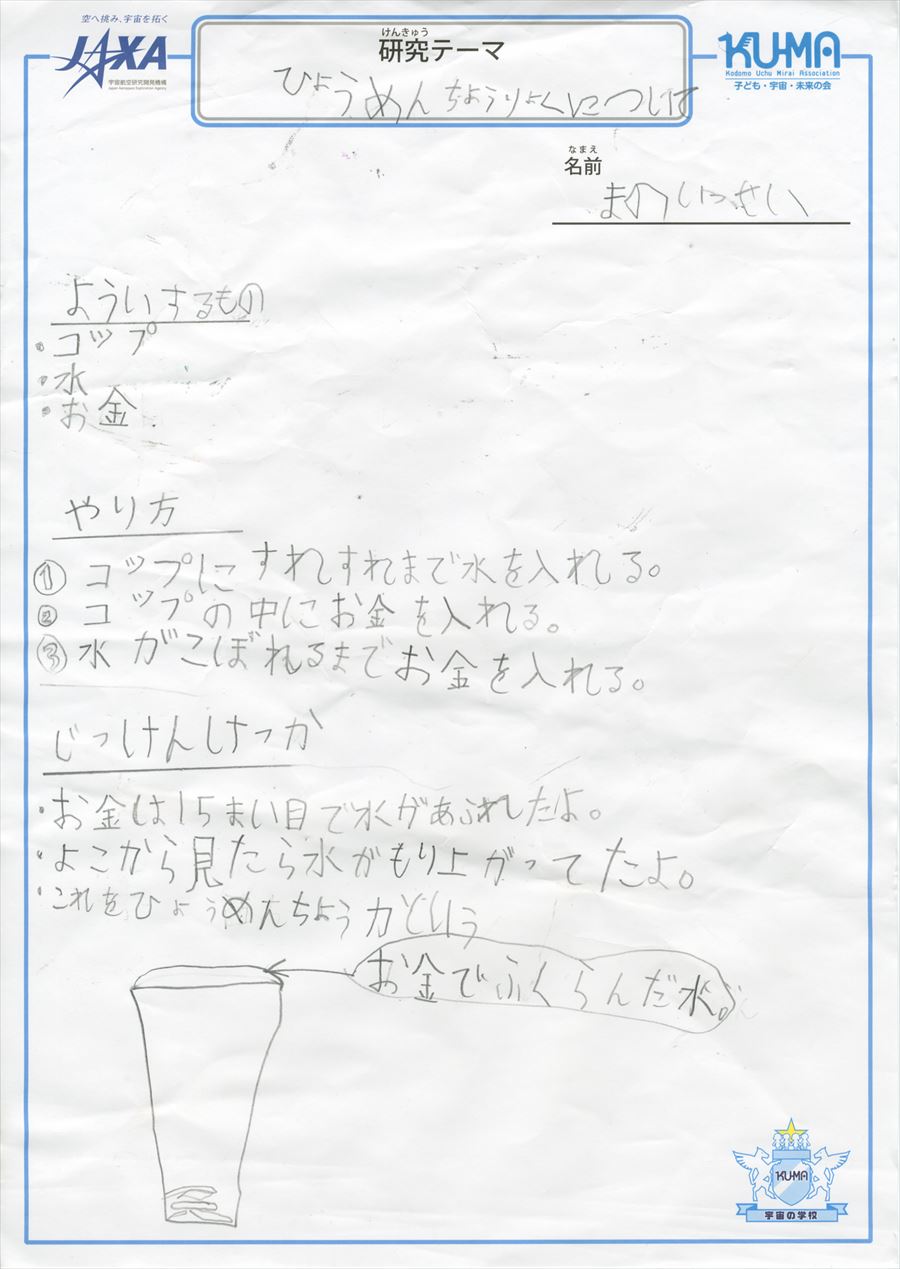 空へ挑み、宇宙を拓く
JAXA
宇宙航空研究開発機構
Japan Aerospace Exploration Agency
けんきゅう
研究テーマ
ひょうめんちょうりょくについて
KU-MA
Kodomo Uchu Mirai Association
子ども・宇宙・未来の会
なまえ
名前
まのいっせい
よういするもの
・コップ
・水
・お金
やり方
① コップにすれすれまで水を入れる。
② コップの中にお金を入れる。
③ 水がこぼれるまでお金を入れる。
じっけんけっか
・お金は15まい目で水があふれしたよ。
・よこから見たら水がもり上がってたよ。
・これをひょうめんちょう力という
お金でふくらんだ水。
KU-MA
宇宙の学校